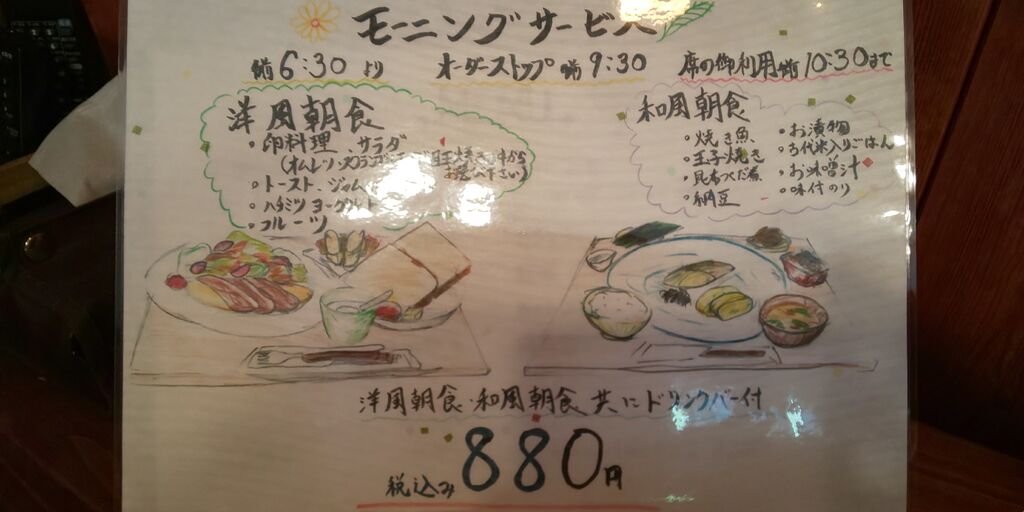 モーニングサービス
朝6:30より オーダーストップ朝9:30 席の御利用朝10:30まで
洋風朝食
・卵料理 サラダ
(オムレツ・スクランブル 目玉焼き 中から
お選び下さい)
・トースト・ジャム
・ハチミツヨーグルト
・フルーツ
和風朝食
・焼き魚
・玉子焼き
・昆布つくだ煮
・納豆
・お漬物
・古代米入りごはん
・お味噌汁
・味付のり
洋風朝食・和風朝食 共にドリンクバー付
税込み880円